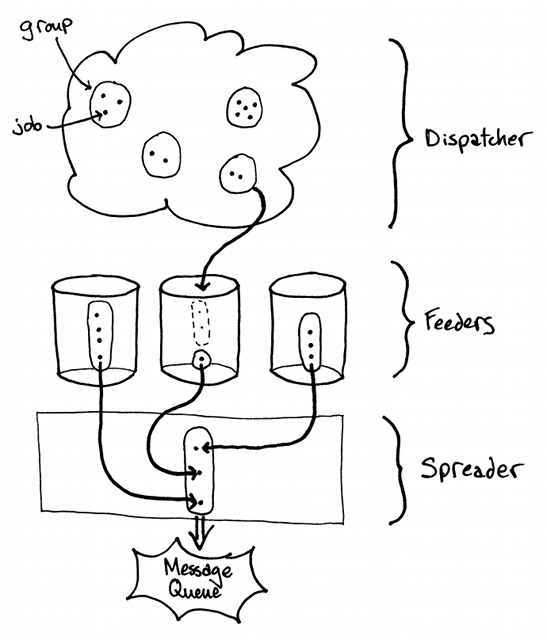 group
job
Dispatcher
Feeders
Spreader
Message
Queue